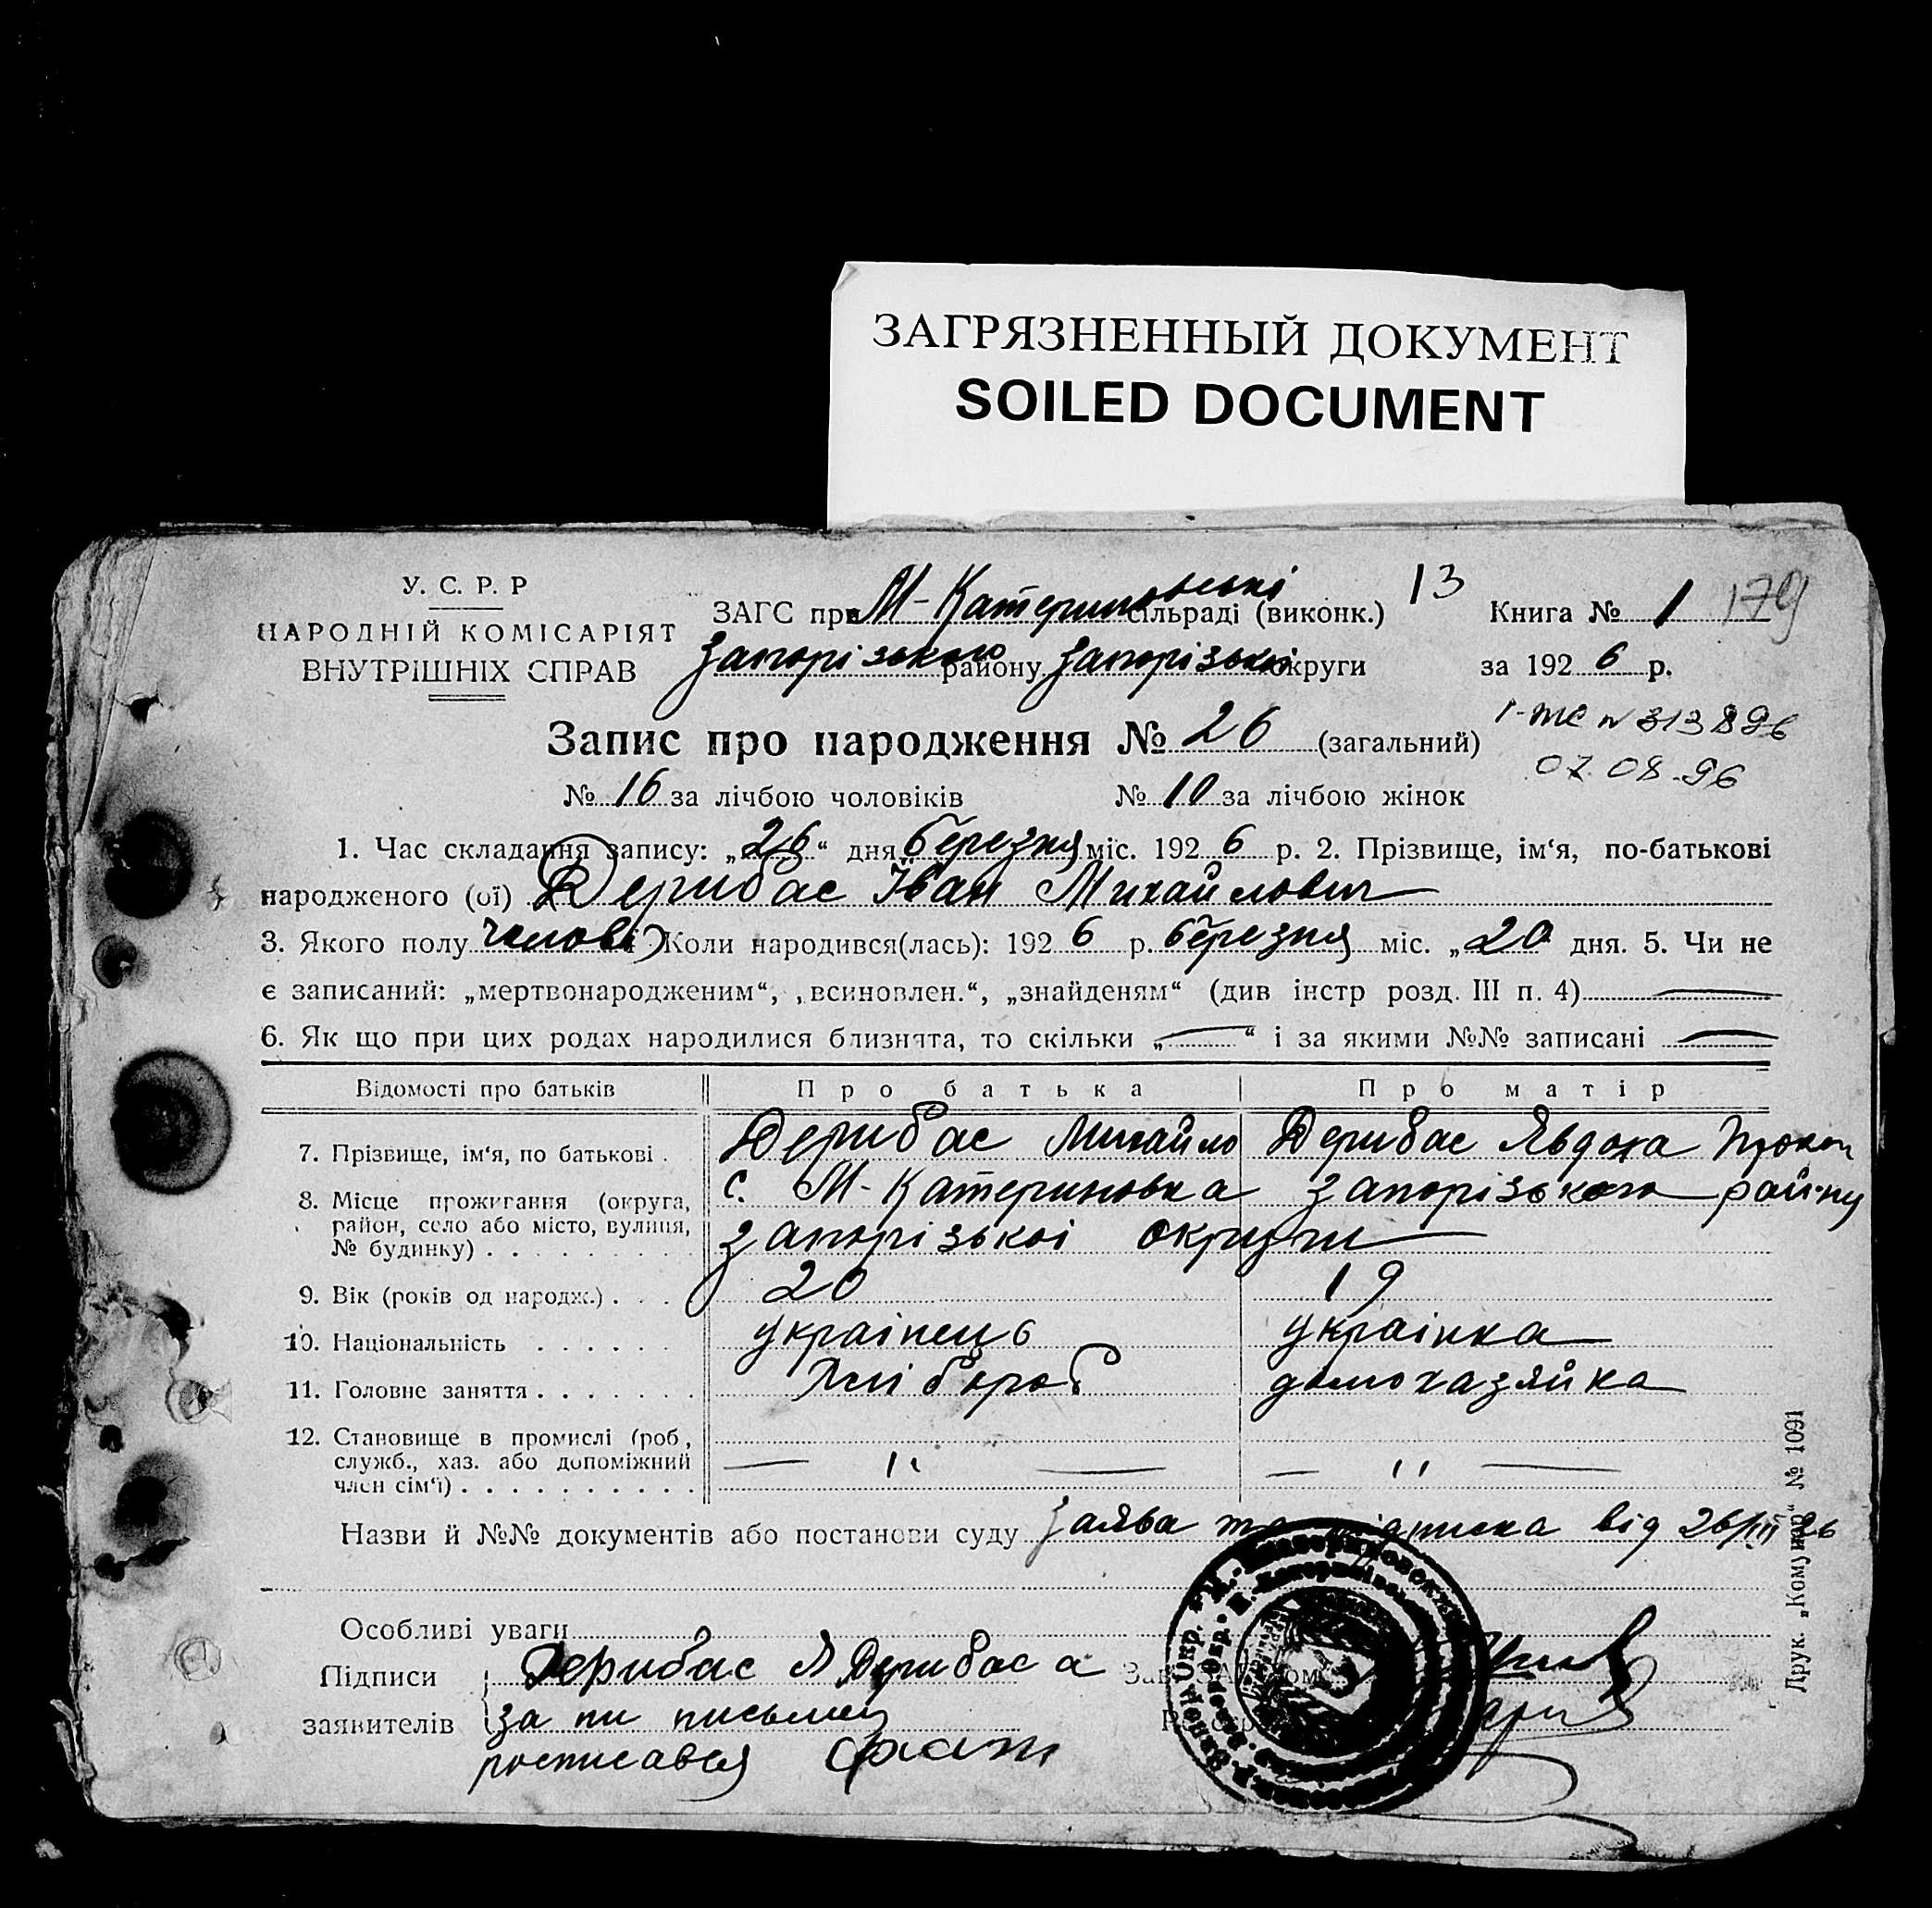 ЗАГРЯЗНЕННЫЙ ДОКУМЕНТ
SOILED DOCUMENT
У. С. Р. Р
НАРОДНІЙ КОМІСАРІЯТ
ВНУТРІШНІХ СПРАВ
ЗАГС при М-Катериновські сільраді (виконк.) 13
Запорізького району Запорізької округи
Книга № 1 179
за 1926 р.
Запис про народження № 26 (загальний)
1-ЖС № 313896
07.08.96
№ 16 за лічбою чоловіків № 10 за лічбою жінок
1. Час складання запису: „26“ дня березня міс. 1926 р. 2. Прізвище, ім‘я, по-батькові
народженого (ої) Дерибас Іван Михайлович
3. Якого полу чолові Коли народився(лась): 1926 р. березня міс. „20 дня. 5. Чи не
є записаний: „мертвонародженим“, „всиновлен.“, „знайденям“ (див інстр розд. III п. 4)
6. Як що при цих родах народилися близнята, то скільки „ “ і за якими №№ записані
Відомості про батьків Про батька Про матір
7. Прізвище, ім‘я, по батькові . Дерибас Михайло Дерибас Явдоха Прокоп
8. Місце прожигання (округа, с. М-Катериновка Запорізького району
район, село або місто, вулиця,
№ будинку) . . . . . . . . . Запорізької округи
9. Вік (років од народж.) . . . 20 19
10. Національність . . . . . . українець українка
11. Головне заняття . . . . . . . Хлібороб домохазяйка
12. Становище в промислі (роб.,
служб., хаз. або допоміжний — 11 — — 11 —
член сім‘ї) . . . . . . . . . .
Назви й №№ документів або постанови суду заява та підписка від 26/III 26
Особливі уваги
Підписи Дерибас Я Дерибаса
заявителів за ни письмен
росписався
Друк. „Комунар“ № 1091